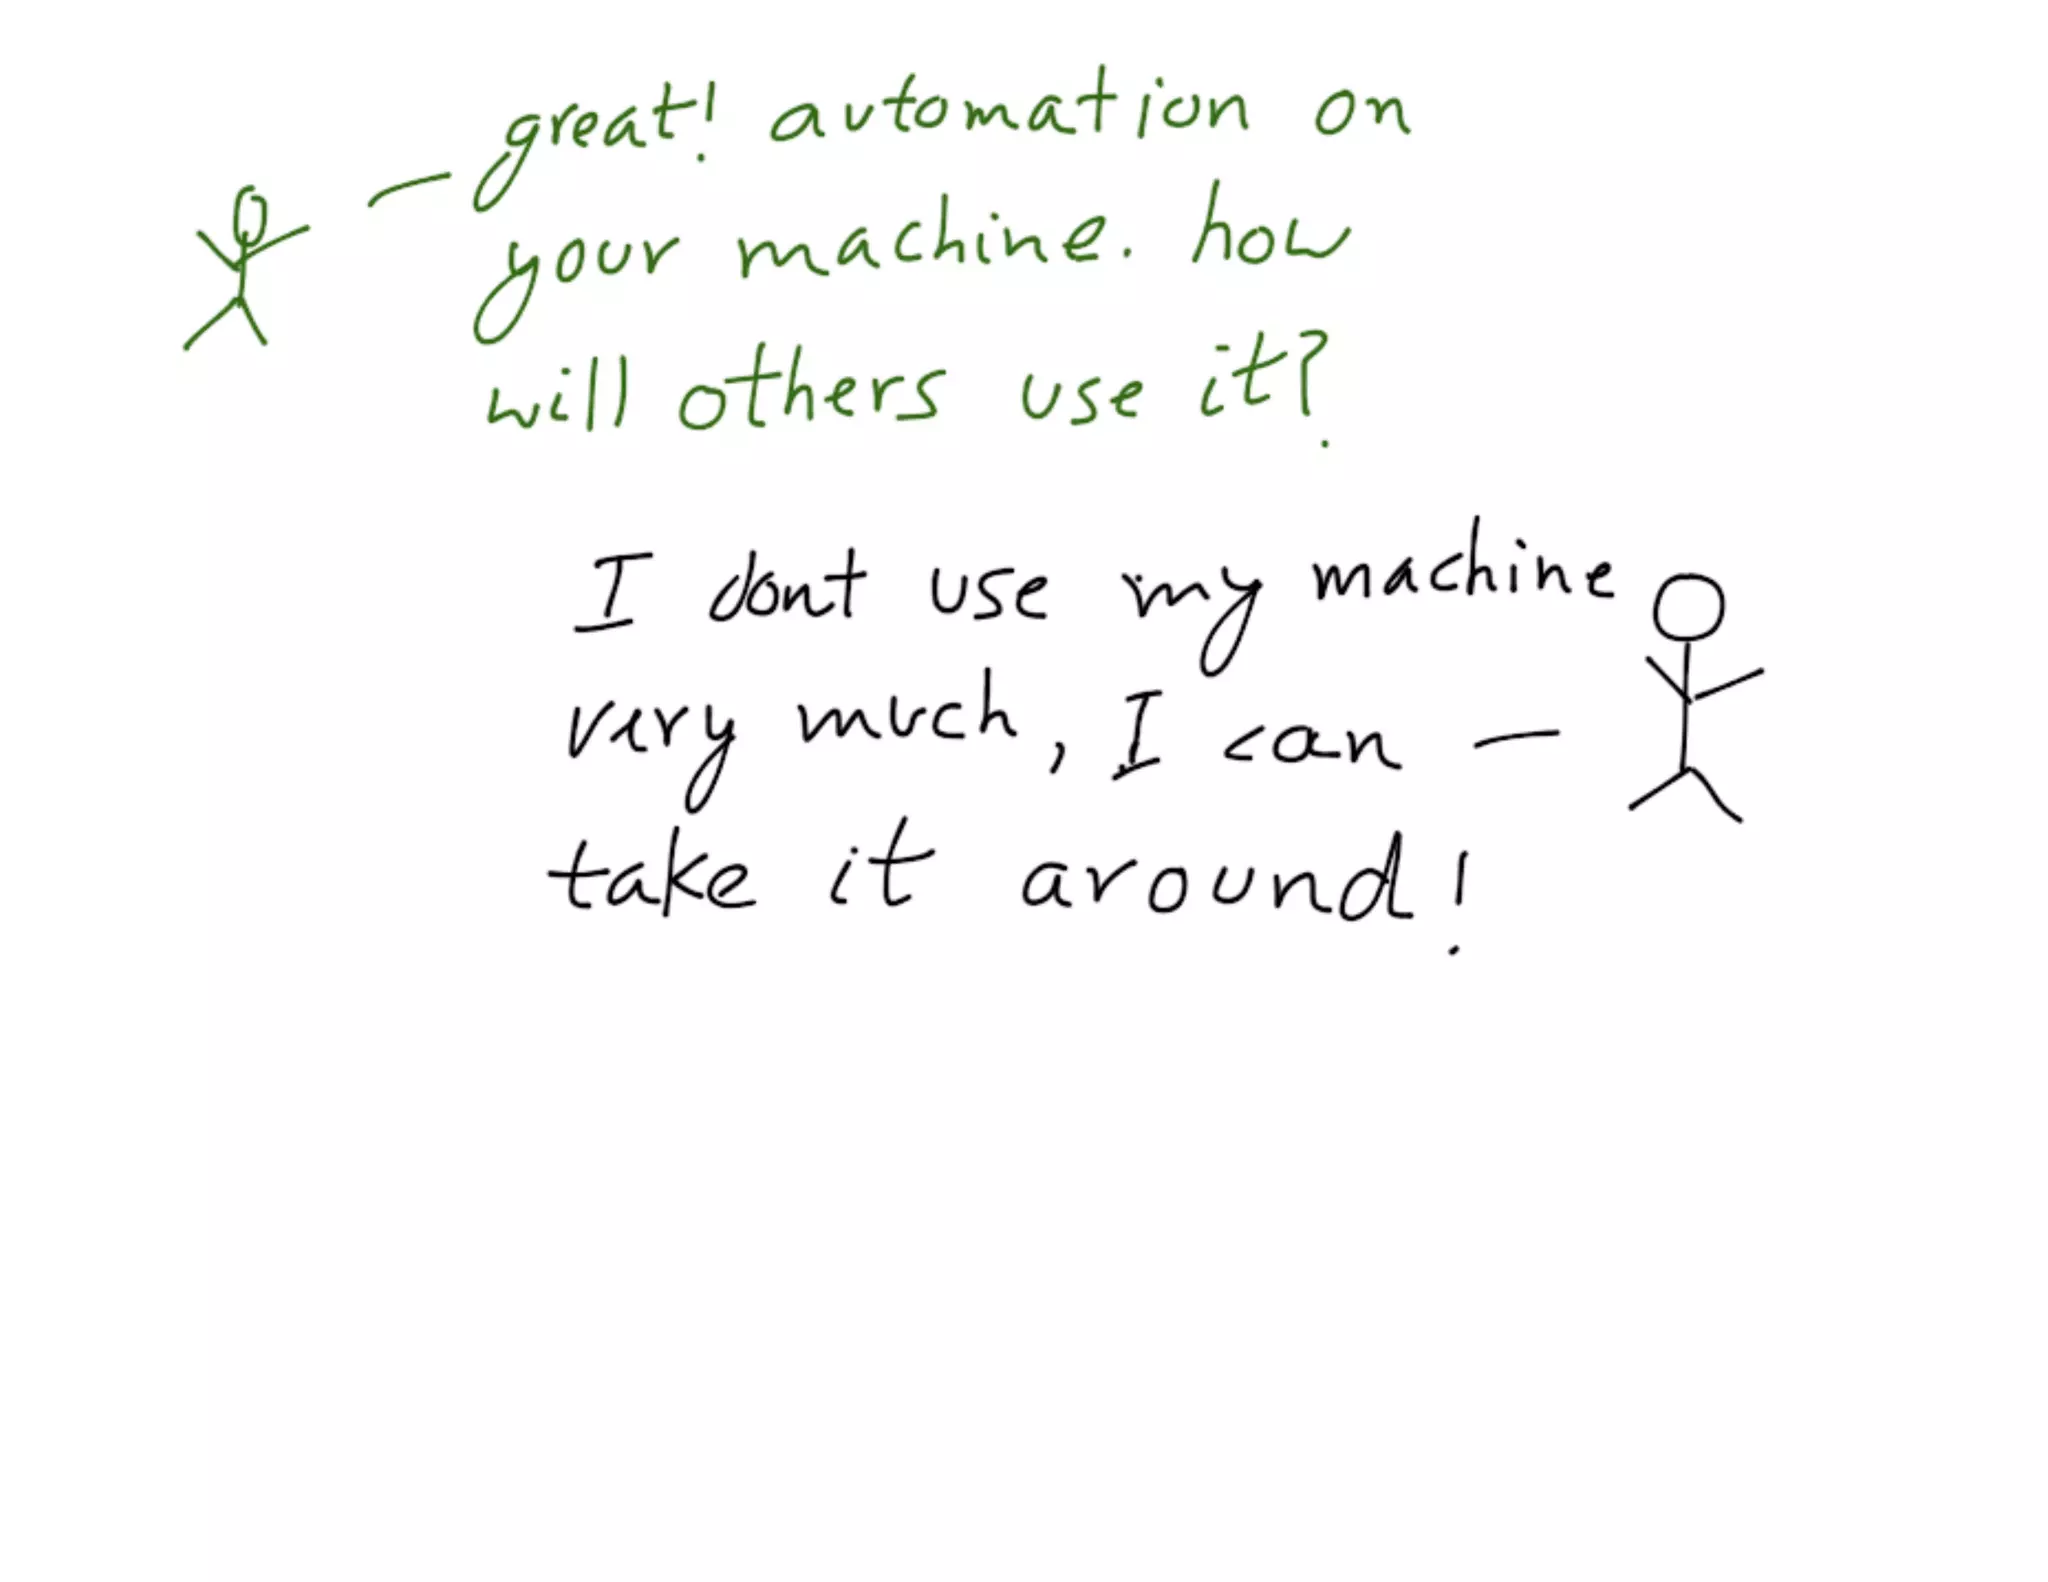 great! automation on
your machine. how
will others use it?
I dont use my machine
very much, I can
take it around!